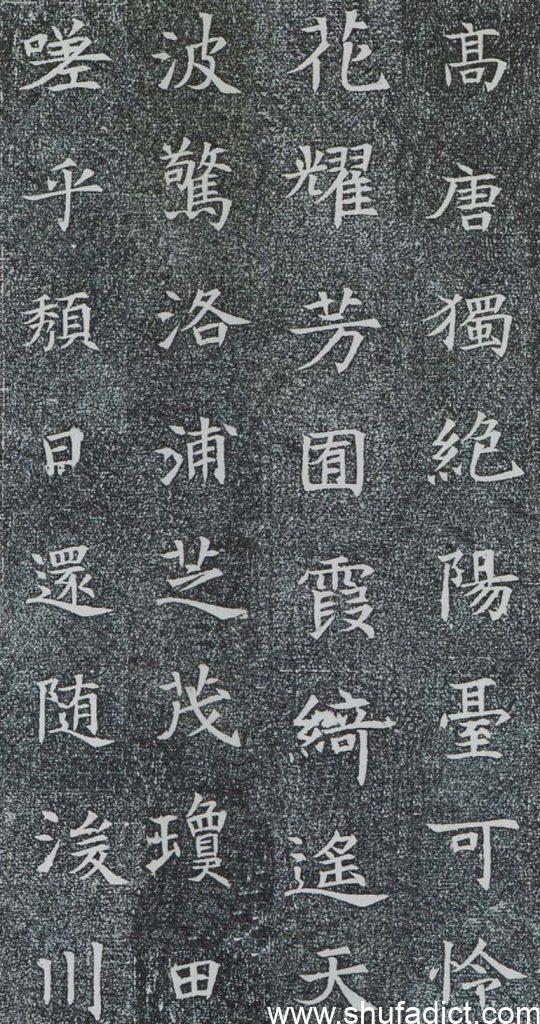 高唐獨絶陽臺可怜
花耀芳囿霞綺遥天
波驚洛浦芝茂瓊田
嗟乎頽日還随浚川
www.shufadict.com